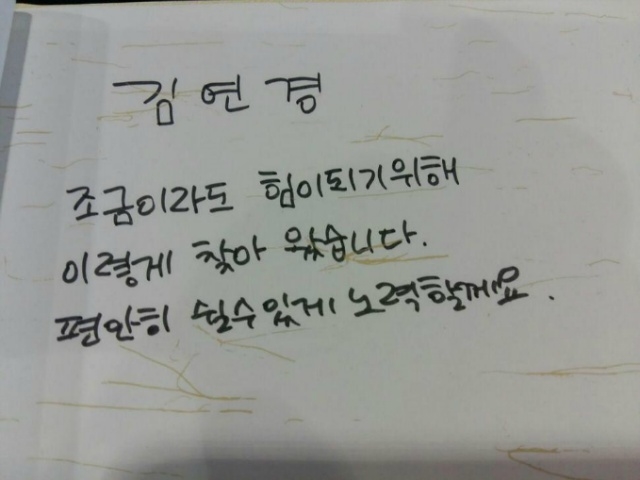 김연경
조금이라도 힘이되기위해
이렇게 찾아 왔습니다.
편안히 쉴수있게 노력할께요.